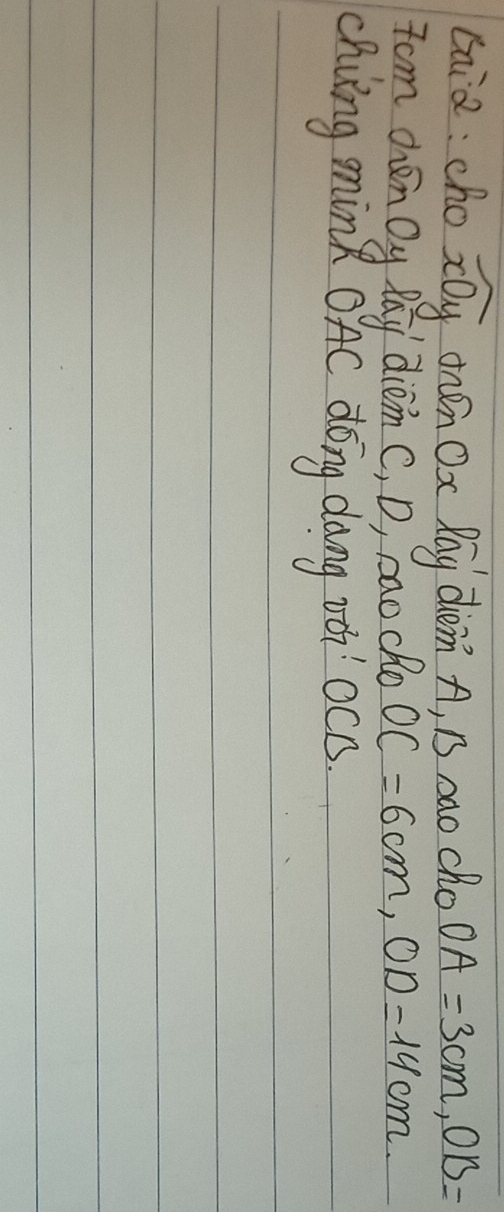 Bài 2: cho xOy trên Ox lấy điểm A, B sao cho OA = 3cm, OB =
7cm trên Oy lấy điểm C, D, sao cho OC = 6cm, OD = 14cm.
chứng minh OAC đồng dạng với OCB.